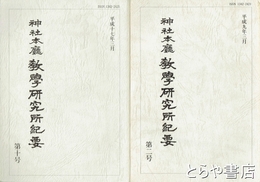 平成九年三月
神社本廳
教學研究所紀要
第二号
平成十七年三月
神社本廳
教學研究所紀要
第十号
とらや書店